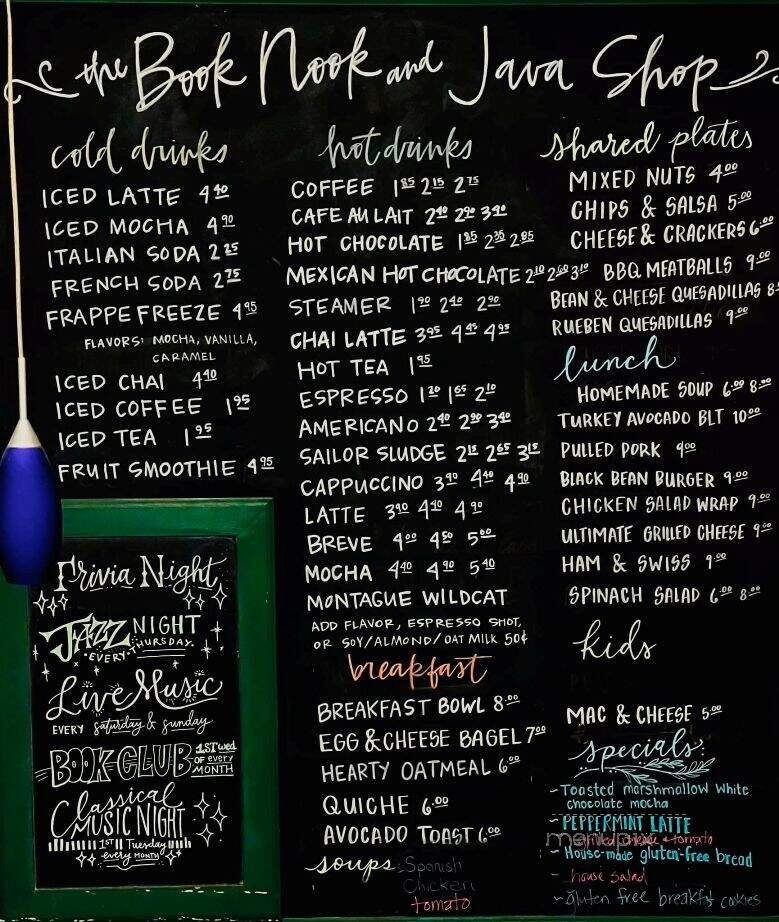 the Book Nook and Java Shop
cold drinks
ICED LATTE 4.40
ICED MOCHA 4.90
ITALIAN SODA 2.25
FRENCH SODA 2.75
FRAPPE FREEZE 4.95
FLAVORS: MOCHA, VANILLA,
CARAMEL
ICED CHAI 4.40
ICED COFFEE 1.95
ICED TEA 1.95
FRUIT SMOOTHIE 4.95
Trivia Night
JAZZ NIGHT
EVERY THURSDAY
Live Music
EVERY saturday & sunday
BOOK CLUB 1ST wed
OF every
MONTH
Classical
MUSIC NIGHT
1ST Tuesday
every MONTH
hot drinks
COFFEE 1.85 2.15 2.75
CAFE AU LAIT 2.40 2.90 3.40
HOT CHOCOLATE 1.85 2.35 2.85
MEXICAN HOT CHOCOLATE 2.10 2.60 3.10
STEAMER 1.90 2.40 2.90
CHAI LATTE 3.95 4.45 4.95
HOT TEA 1.95
ESPRESSO 1.20 1.65 2.10
AMERICANO 2.40 2.90 3.40
SAILOR SLUDGE 2.15 2.65 3.15
CAPPUCCINO 3.90 4.40 4.90
LATTE 3.90 4.40 4.90
BREVE 4.00 4.50 5.00
MOCHA 4.40 4.90 5.40
MONTAGUE WILDCAT
ADD FLAVOR, ESPRESSO SHOT,
OR SOY/ALMOND/OAT MILK 50¢
breakfast
BREAKFAST BOWL 8.00
EGG & CHEESE BAGEL 7.00
HEARTY OATMEAL 6.00
QUICHE 6.00
AVOCADO TOAST 6.00
soups: Spanish
Chicken
tomato
shared plates
MIXED NUTS 4.00
CHIPS & SALSA 5.00
CHEESE & CRACKERS 6.00
BBQ MEATBALLS 9.00
BEAN & CHEESE QUESADILLAS 8
RUEBEN QUESADILLAS 9.00
lunch
HOMEMADE SOUP 6.00 8.00
TURKEY AVOCADO BLT 10.00
PULLED PORK 9.00
BLACK BEAN BURGER 9.00
CHICKEN SALAD WRAP 9.00
ULTIMATE GRILLED CHEESE 9.00
HAM & SWISS 9.00
SPINACH SALAD 6.00 8.00
kids
MAC & CHEESE 5.00
specials:
~Toasted marshmallow white
chocolate mocha
~PEPPERMINT LATTE
tomato
~House-made gluten-free bread
~house salad
~gluten free breakfst cookies